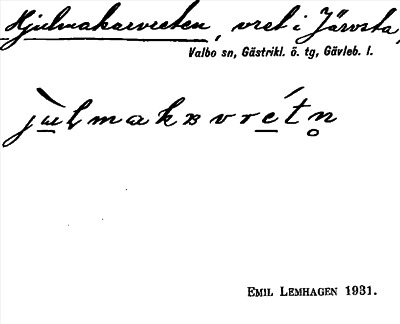 Hjulmakarvreten, vret i Järvsta,
Valbo sn, Gästrikl. ö. tg, Gävleb. l.
jùlmakʀvrétn̥
EMIL LEMHAGEN 1931.